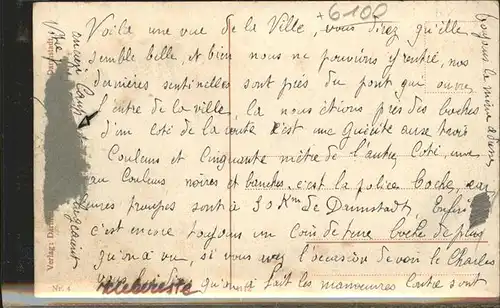 +6100
Voila une vue de la Ville, vous direz qu'elle
semble belle, et bien nous ne pouvions y rentré, nos
dernières sentinelles sont près du pont qui ouvre
l'entre de la ville, la nous étions près des boches
d'un coté de la route c'est une Guérite aux trois
Couleurs et Cinquante mètre de l'autre Coté, une
au Couleurs noires et blanches, c'est la police boche, car
troupes sont à 30 Km de Darmstadt, Enfin
c'est encore toujours un coin de terre boche de plus
qu'on a vu, si vous voyez l'occasion de voir le Charles
qu'on a fait les manoeuvres Contre sont
toujours la même adresse
Votre ancien Camp
Verlag: Darm
Nr. 4